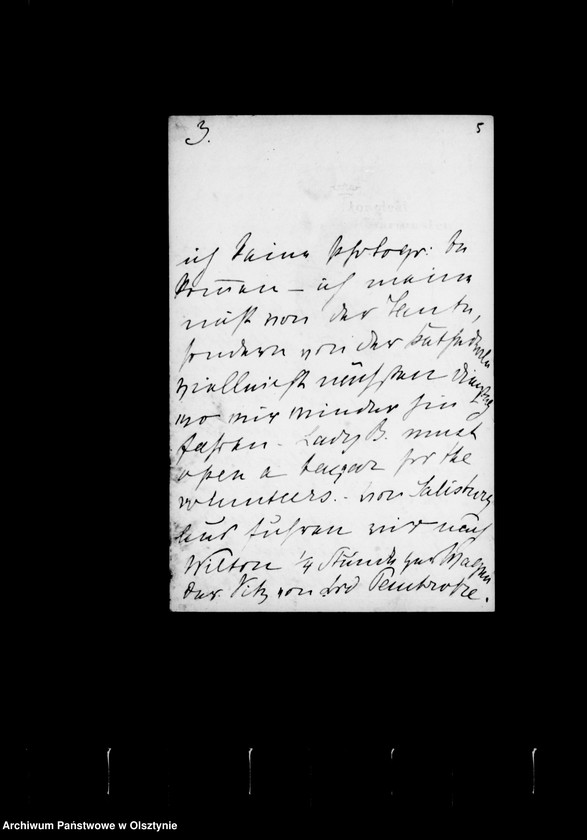 3.
5
ich keine Photogr: be
kommen – ich meine
nicht von der Tante,
sondern von der Kathedrale
vielleicht nächsten Dienstag
wo wir wieder hin
fahren. Lady B. must
open a bazaar for the
volunteers. – Von Salisbury
aus fuhren wir nach
Wilton 1/4 Stunde per Wagen
der Sitz von Lord Pembroke.
Archiwum Państwowe w Olsztynie